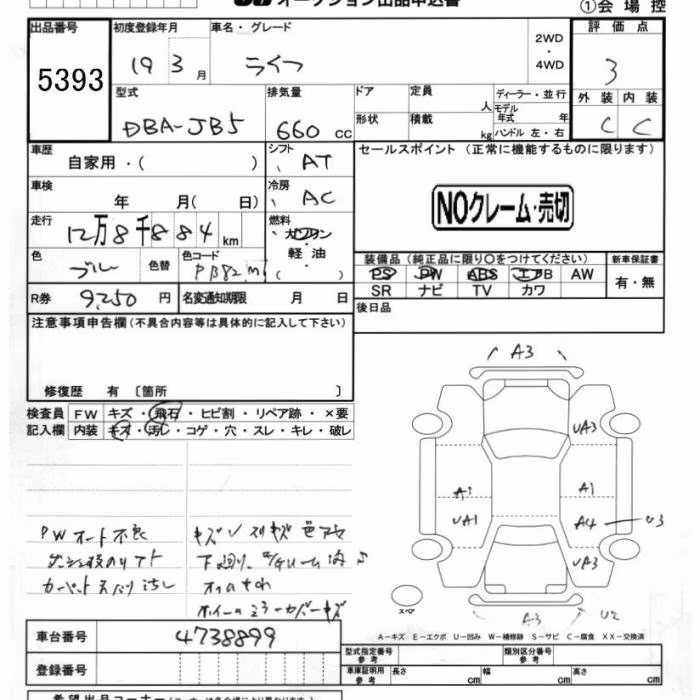 オークション出品申込書
①会場控
出品番号
5393
初度登録年月
19 3 月
車名・グレード
ライフ
2WD
・
4WD
評価点
3
型式
DBA-JB5
排気量
660 cc
ドア
定員
人
ディーラー・並行
モデル年式 年
形状
積載
kg
ハンドル 左・右
外装
内装
C
C
車歴
自家用・( )
シフト
AT
セールスポイント (正常に機能するものに限ります)
NOクレーム・売切
車検
年 月( 日)
冷房
AC
走行
12万8千884km
燃料
ガソリン
・
軽・油
( )
色
ブルー
色替
色コード
PB82M
装備品 (純正品に限り○をつけてください)
新車保証書
PS PW ABS エアB AW
SR ナビ TV カワ
有・無
R券
9,250 円
名変通知期限 月 日
後日品
注意事項申告欄(不具合内容等は具体的に記入して下さい)
修復歴 有 〔箇所 〕
検査員
記入欄
FW キズ・飛石・ヒビ割・リペア跡・×要
内装 キズ・汚レ・コゲ・穴・スレ・キレ・破レ
PWオート不良
カーペット スレ 汚レ
キズ
下廻り
A3
UA3
A1
A1
UA1
A4
U3
UA3
A3
U2
スペア
A-キズ E-エクボ U-凹み W-補修跡 S-サビ C-腐食 XX-交換済
車台番号
4738899
登録番号
型式指定番号
参考
類別区分番号
参考
車庫証明用
参考
長さ cm
幅 cm
高さ cm
希望出品コーナー